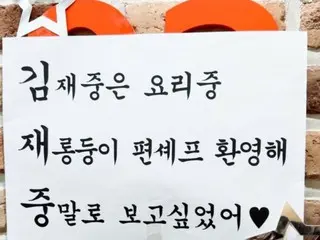 김재중은 요리중
재롱둥이 편셰프 환영해
중말로 보고싶었어♥